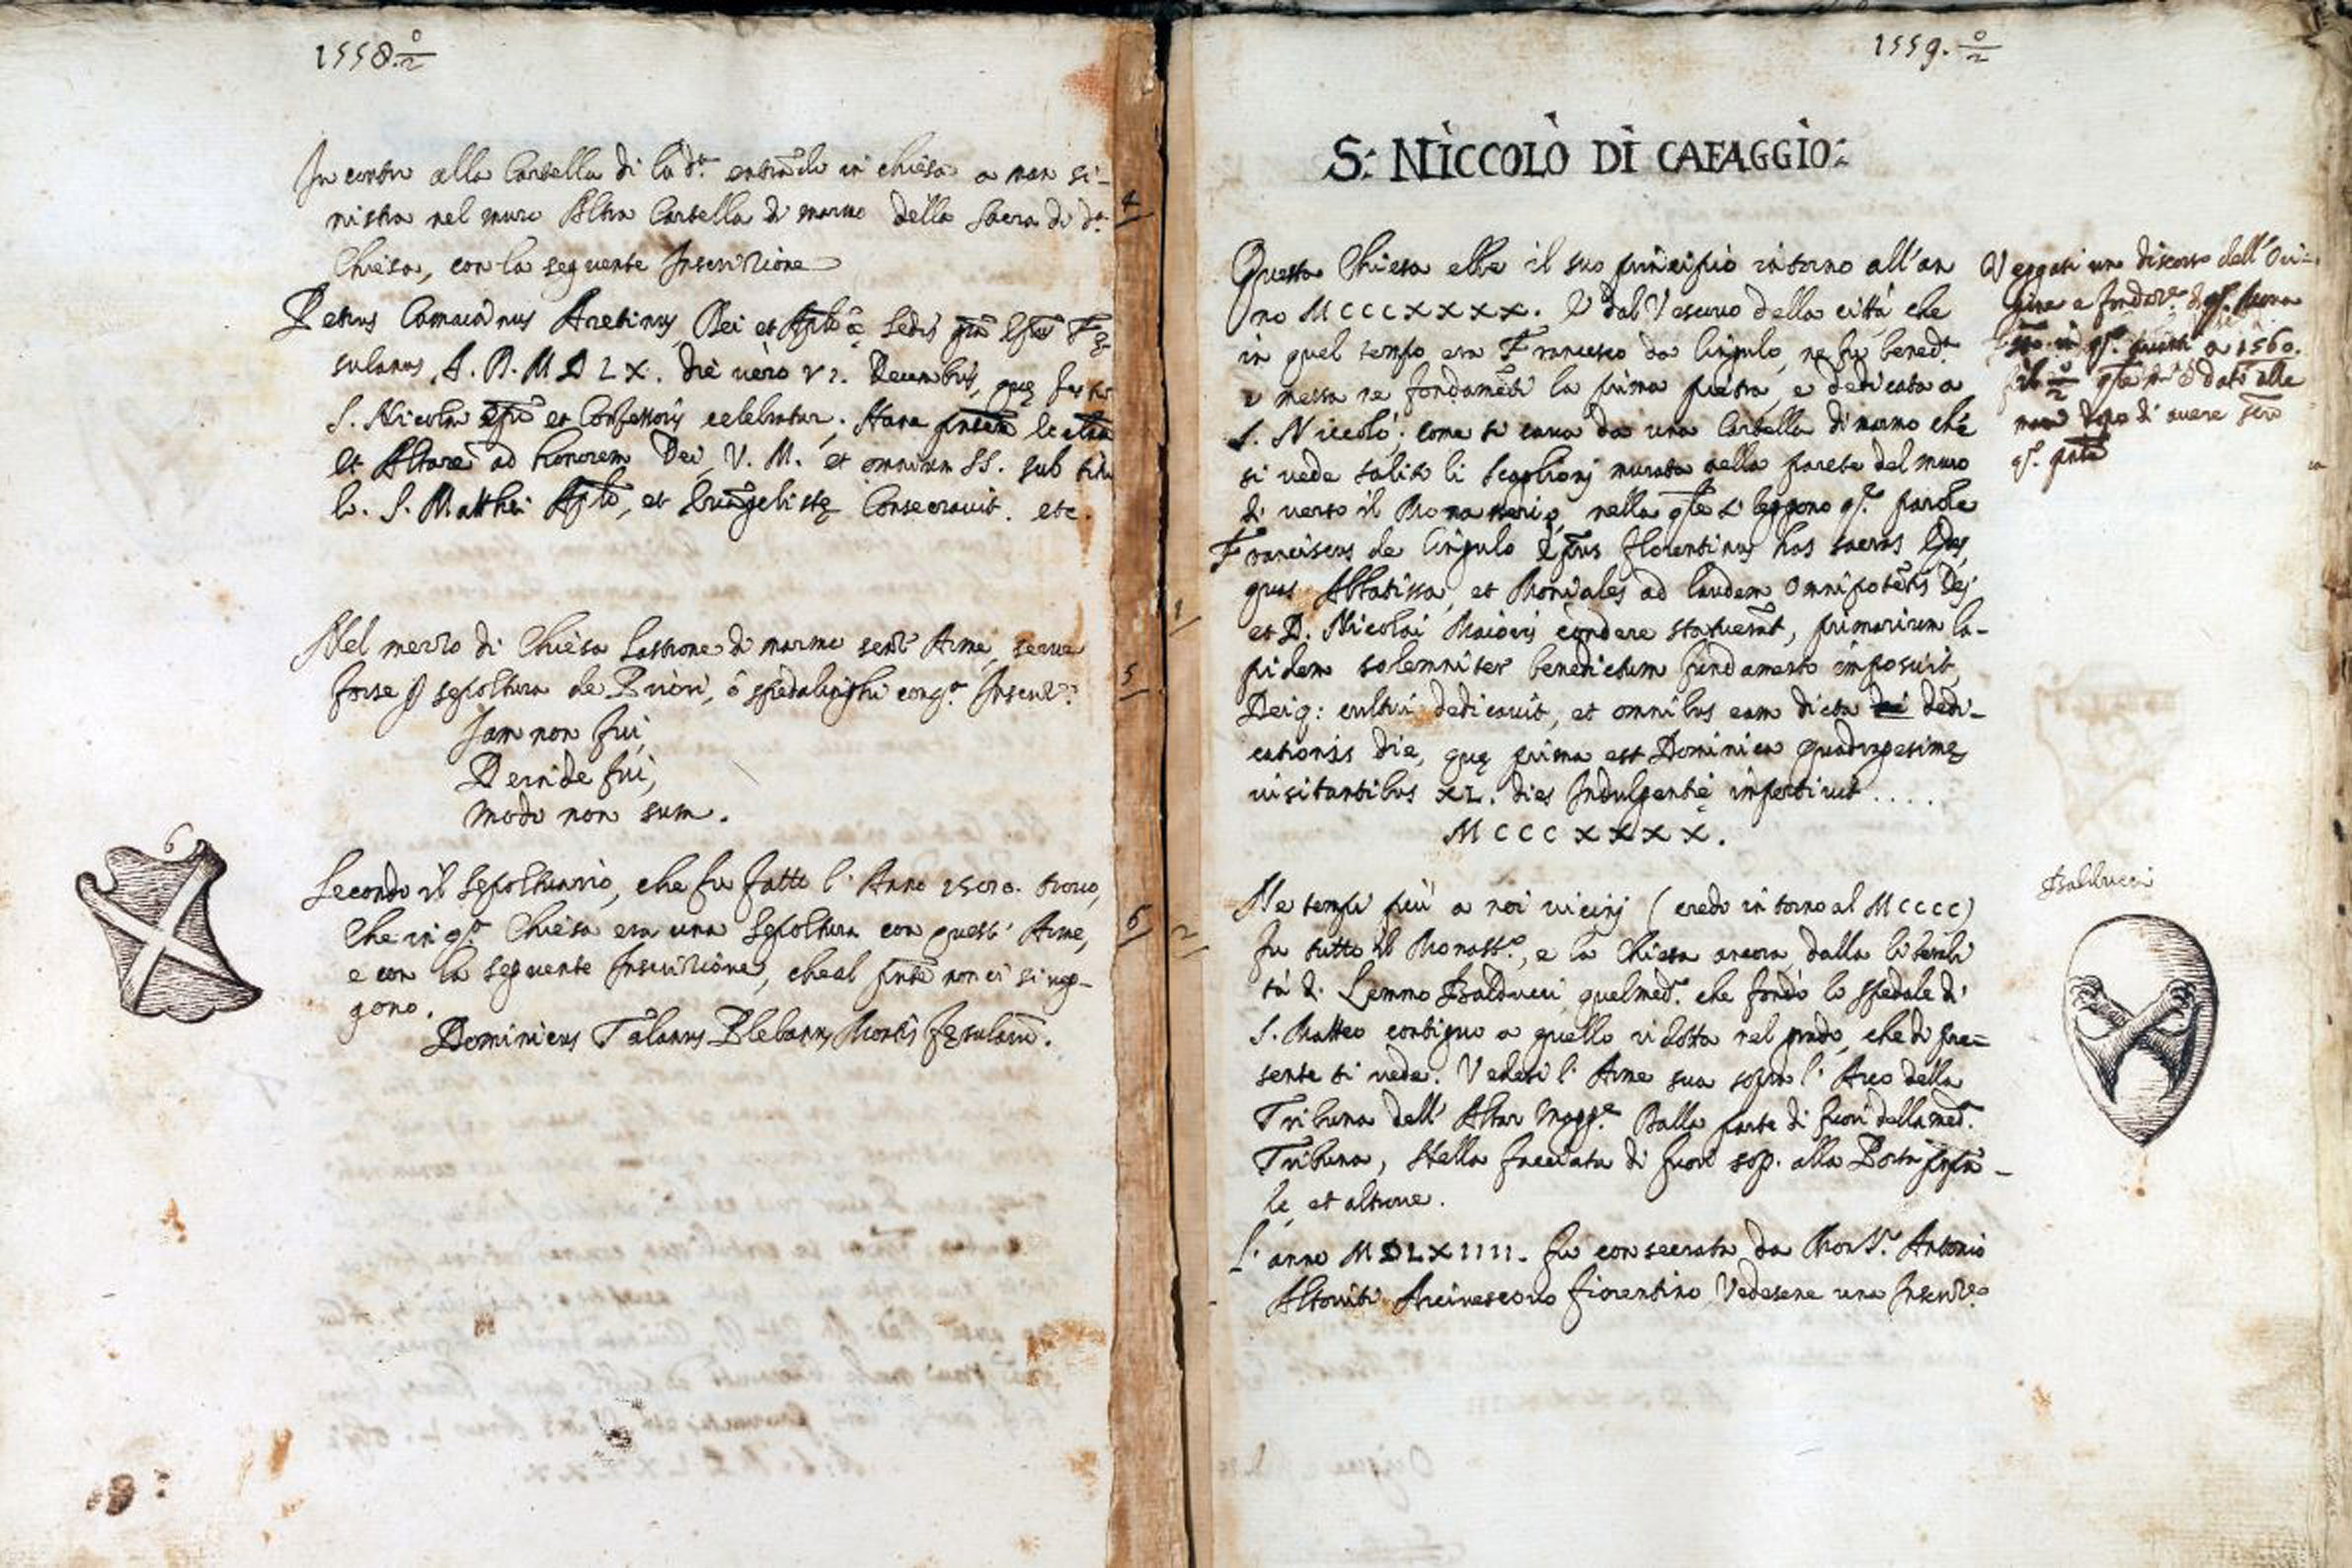 1558. 0/2
In contro alla Cartella di là d.ª entrādo in chiesa a man si-
nistra nel muro Altra Cartella di marmo della Sacra di d.ª
Chiesa, con la seguente Inscrizione
4
Petrus Camaianus Aretinus, Dei et Aplicę Sedis grā Epus Fę
sulanus, A. D. MDLX. die vero VI. Decembris, quę festū
S. Nicolai epi et Confessoris celebratur. Hanc
et Altare ad honorem Dei, V. M. et omnium SS. sub titu
lo. S. Matthei Apli, et Evāgelistę Consecravit. etc.
Nel mezzo di Chiesa Lastrone di marmo senz' Arme, serve
forse p sepoltura de Priori, ò spedalinghi con q.ª Inscriz.e
5
Jam non fui,
Deinde fui,
Modo non sum.
6
Secondo il Sepoltuario, che fu fatto l' Anno trovo,
che in q.ª Chiesa era una Sepoltura con quest' Arme,
6
e con la seguente Inscrizione, che al pnte non ci si veg-
gono.
Dominicus Talanus Plebanus Montis Fęsulani.
1559. 0/2
S: NICCOLÒ DI CAFAGGIO:
Questa Chiesa ebbe il suo principio intorno all'an
no MCCCXXXX. E dal Vescovo della città che
in quel tempo era Francesco da Cingulo, ne fu bened.ª
e messa ne fondamēti la prima pietra, e dedicata a
S. Niccolò; come si cava da una Cartella di marmo che
si vede salito li Scaglionj murata nella parete del muro
di verso il Monasterio, nella qle si leggono q.e parole
Franciscus de Cingulo Epus florentinus has sacras Edes,
1
quas Abbatissa, et Moniales ad laudem Omnipotētis Dej
et D. Nicolai Maioris condere statuerāt, primarium la-
pidem solemniter benedictum fundamento imposuit,
Deiq: cultui dedicavit, et omnibus eam dicta dedi-
cationis die, quę prima est Dominica Quadragesimę
visitantibus XL. dies Indulgentię impertivit ....
MCCCXXXX.
Veggasi uno discorso dell' Ori-
gine e fondaz.e
a 1560.
0/2 dati alle
mon dopo di avere
q.
2
Ne tempi più a noi vicinj (credo intorno al MCCCC)
fu tutto il Monast.o, e la Chiesa ancora dalla liberali
tà di Lemmo Balducci quel med.o che fondò lo spedale di
S. Matteo contiguo a quello ridotta nel modo, che di pre-
sente si vede. Vedesi l' Arme sua sopra l' Arco della
Tribuna dell' Altar Magg.e Dalla parte di fuori della med.ª
Tribuna, Nella facciata di fuori sop. alla Porta
le, et altrove.
Balducci
L' anno MDLXIIII. fu consecrata da Mons.r Antonio
Altoviti Arcivescovo Fiorentino, Vedesene una Inscriz.e